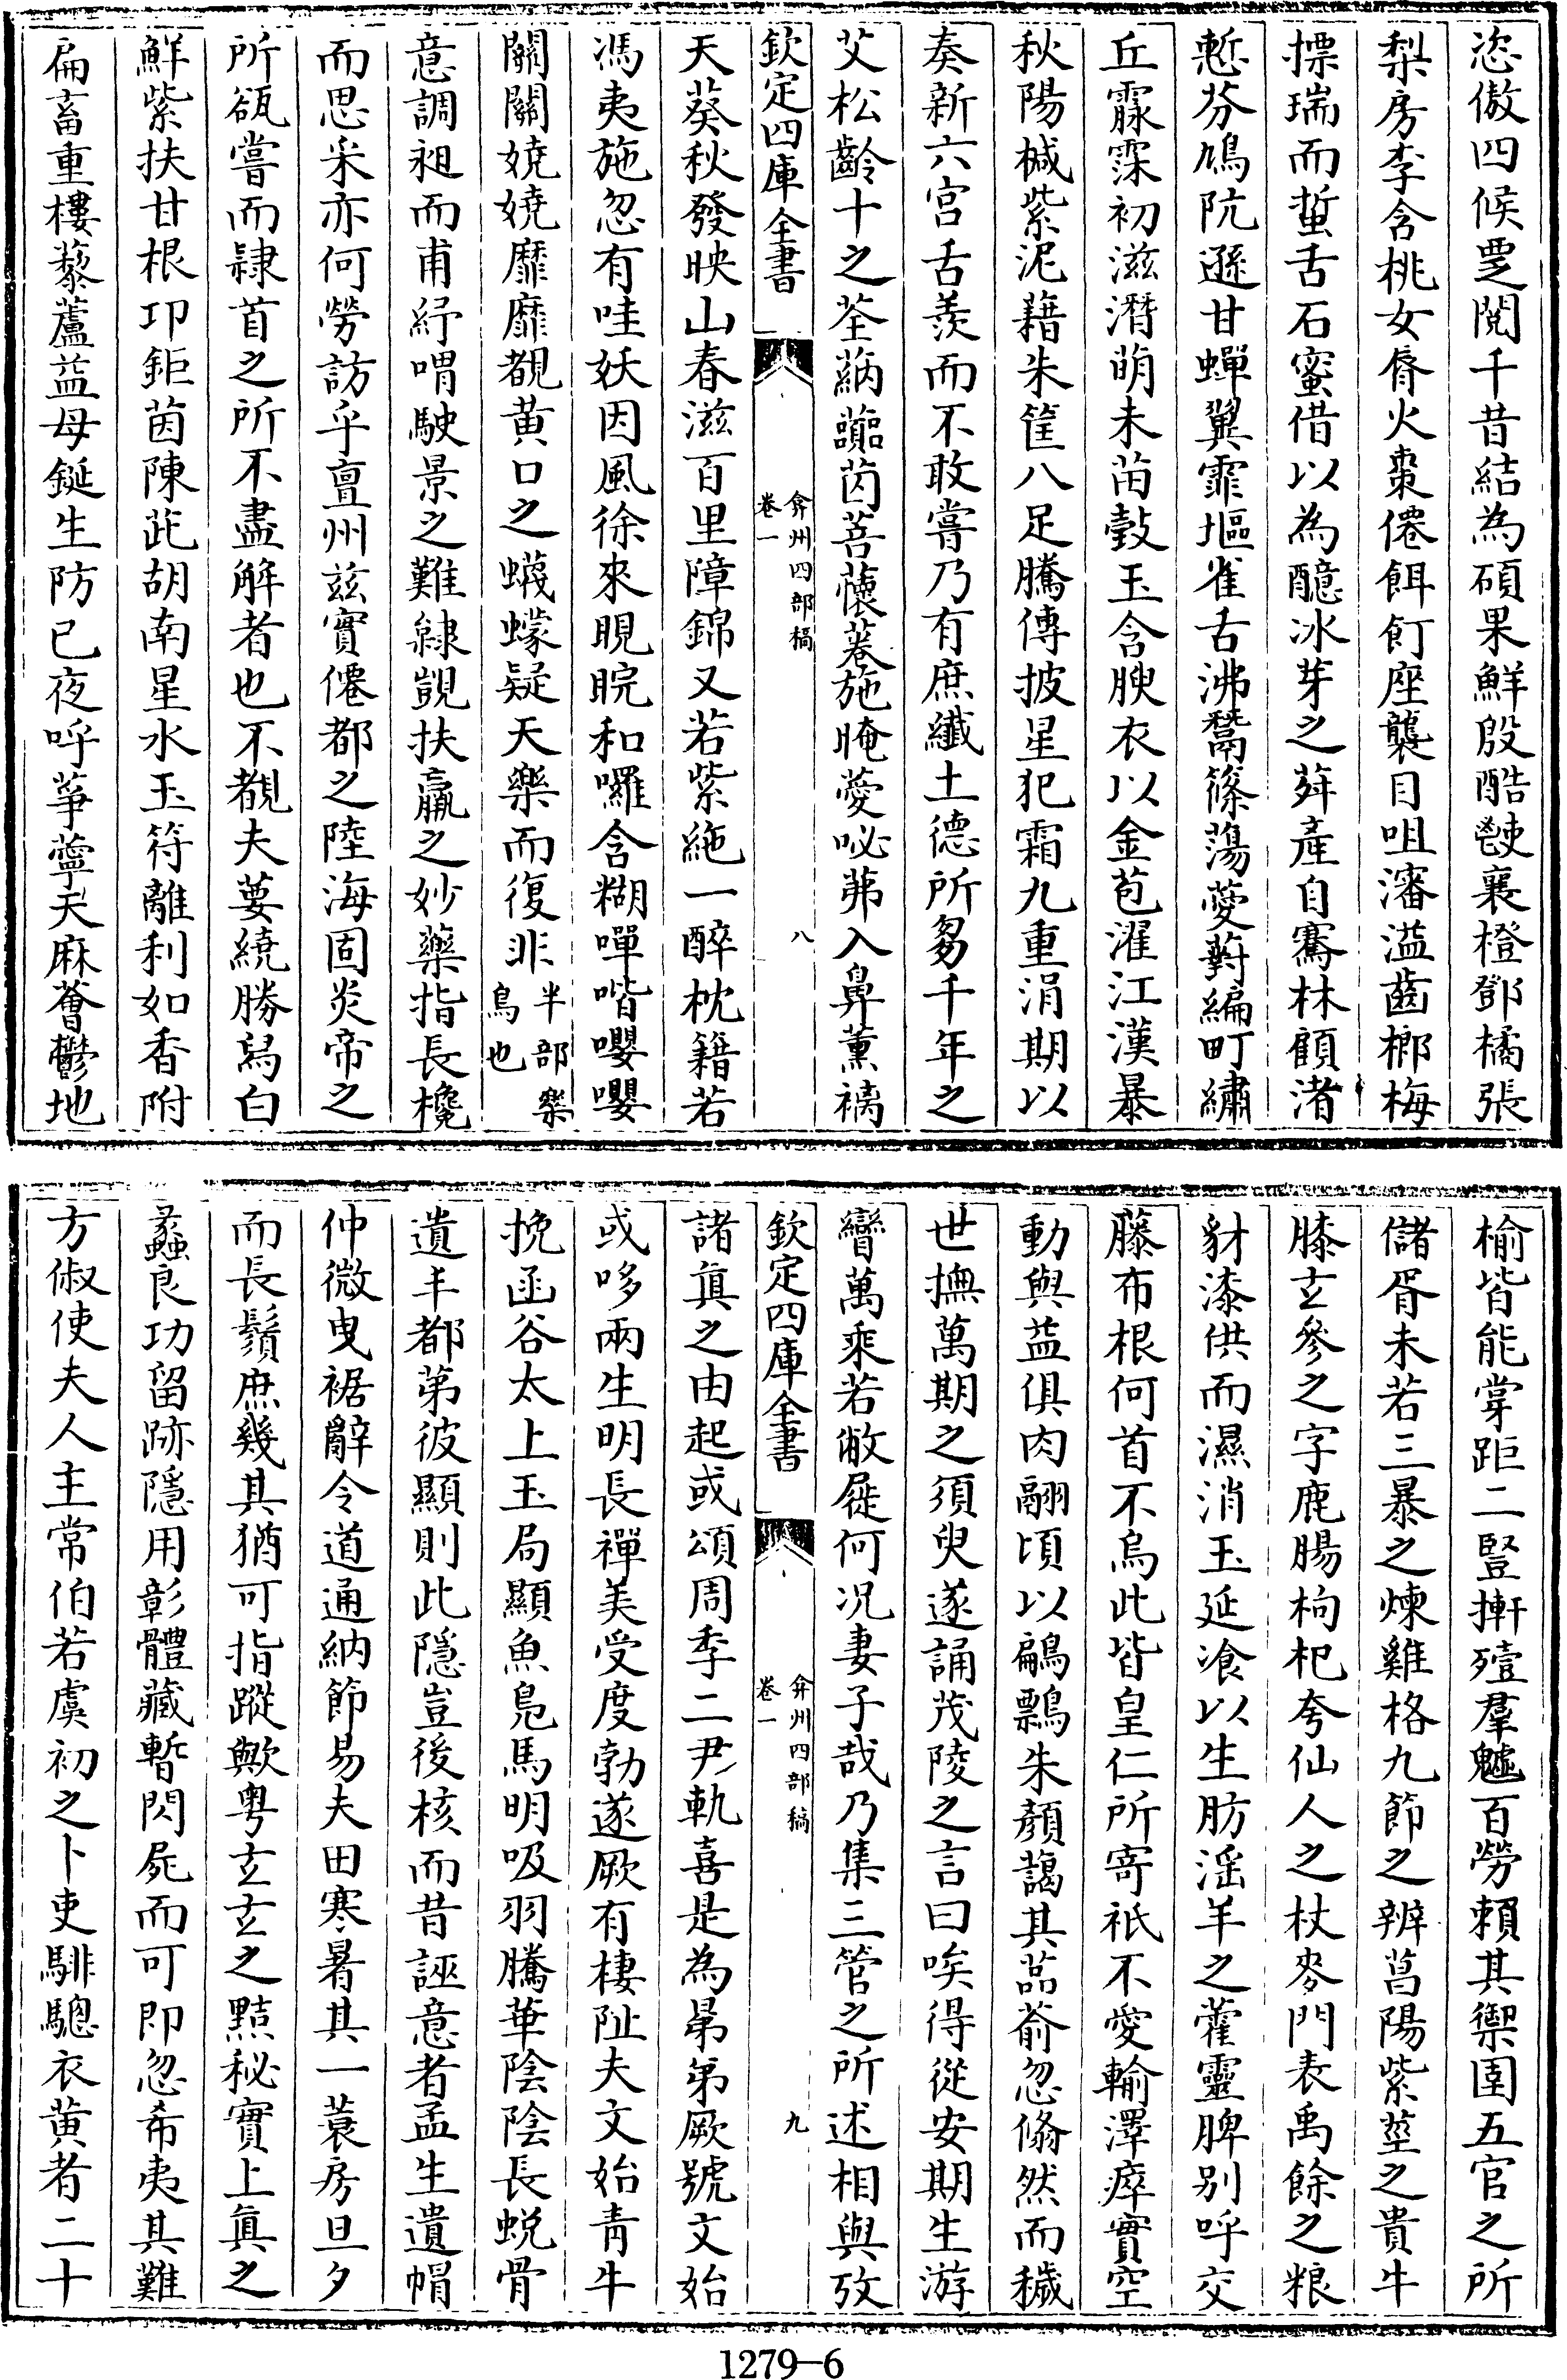 恣傲四候覂閱千昔結為碩果鮮殷酷㪍襄橙鄧橘張
梨房李含桃女脣火棗僊餌飣座襲目咀瀋溢齒榔梅
摽瑞而蜇舌石蜜借以為醷冰芽之荈產自騫林顧渚
慙芬鳩阬遜甘蟬翼霏塸雀舌沸鬵篠蕩薆薱編町繡
丘霢霂初滋潛萌未苗瑴玉含腴衣以金苞濯江漢暴
秋陽椷紫泥藉朱筐八足騰傳披星犯霜九重涓期以
奏新六宮舌羨而不敢嘗乃有庶纖土德所芻千年之
艾松齡十之荃蒳虈茵菩蘹菤施晻薆咇茀入鼻薰褵
欽定四庫全書
弇州四部稿
卷一
八
天葵秋發映山春滋百里障錦又若紫絁一醉枕籍若
馮夷施忽有哇妖因風徐來睍睆和囉含糊嘽喈嚶嚶
關關嬈嬈靡靡覩黃口之蠛蠓疑天樂而復非半部樂鳥也
意調昶而甫紓喟駛景之難𨽻覬扶羸之妙藥指長欃
而思采亦何勞訪乎亶州茲實僊都之陸海固炎帝之
所㼝嘗而隸首之所不盡解者也不覩夫葽繞勝舄白
鮮紫扶甘根卭鉅茵陳茈胡南星水玉符離利如香附
扁畜重樓藜蘆益母鋋生防已夜呼葶薴天麻薈鬱地
榆皆能穿距二豎搟殪羣魖百勞賴其禦圉五官之所
儲胥未若三暴之煉雞格九節之辨菖陽紫莖之貴牛
膝玄參之字鹿腸枸杞夸仙人之杖麥門表禹餘之粮
豺漆供而濕消玉延飡以生肪淫羊之藿靈脾别呼交
藤布根何首不烏此皆皇仁所寄祇不愛輸澤瘁實空
動與益俱肉翮頃以鶣鷅朱顏藹其葩蓊忽翛然而穢
世撫萬期之須臾遂誦茂陵之言曰唉得從安期生游
㘘萬乘若敝屣何况妻子哉乃集三管之所述相與攷
欽定四庫全書
弇州四部稿
卷一
九
諸真之由起或頌周季二尹軌喜是為昴弟厥號文始
或哆兩生明長禪美受度勃遂厥有棲阯夫文始青牛
挽函谷太上玉局顯魚鳧馬明吸羽騰華陰陰長蛻骨
遺丰都苐彼顯則此隱豈後核而昔誣意者孟生遺帽
仲微曳裾辭令道通納節易夫田寒暑其一蓑房旦夕
而長鬚庶幾其猶可指蹤歟粤玄玄之㸃秘實上真之
蠡良功留跡隱用彰體藏暫閃屍而可即忽希夷其難
方俶使夫人主常伯若虞初之卜吏騑驄衣黃者二十
1279—6